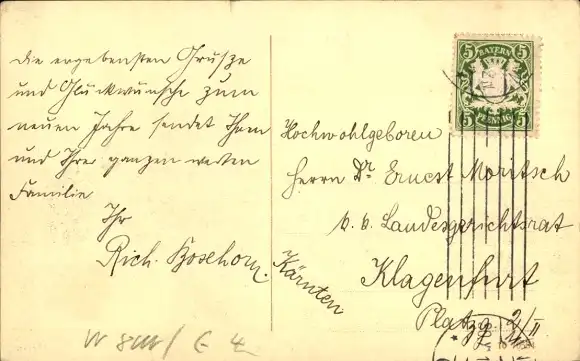 die ergebensten Grüsze
und Glückwünsche zum
neuen Jahre sendet Ihnen
und Ihrer ganzen werten
Familie
Ihr
Rich. Bosehorn.
5 BAYERN 5
5 PFENNIG 5
Hochwohlgeboren
Herrn Dr. Ernest Moritsch
k. k. Landesgerichtsrat
Klagenfurt
Kärnten
Platzg. 2/II